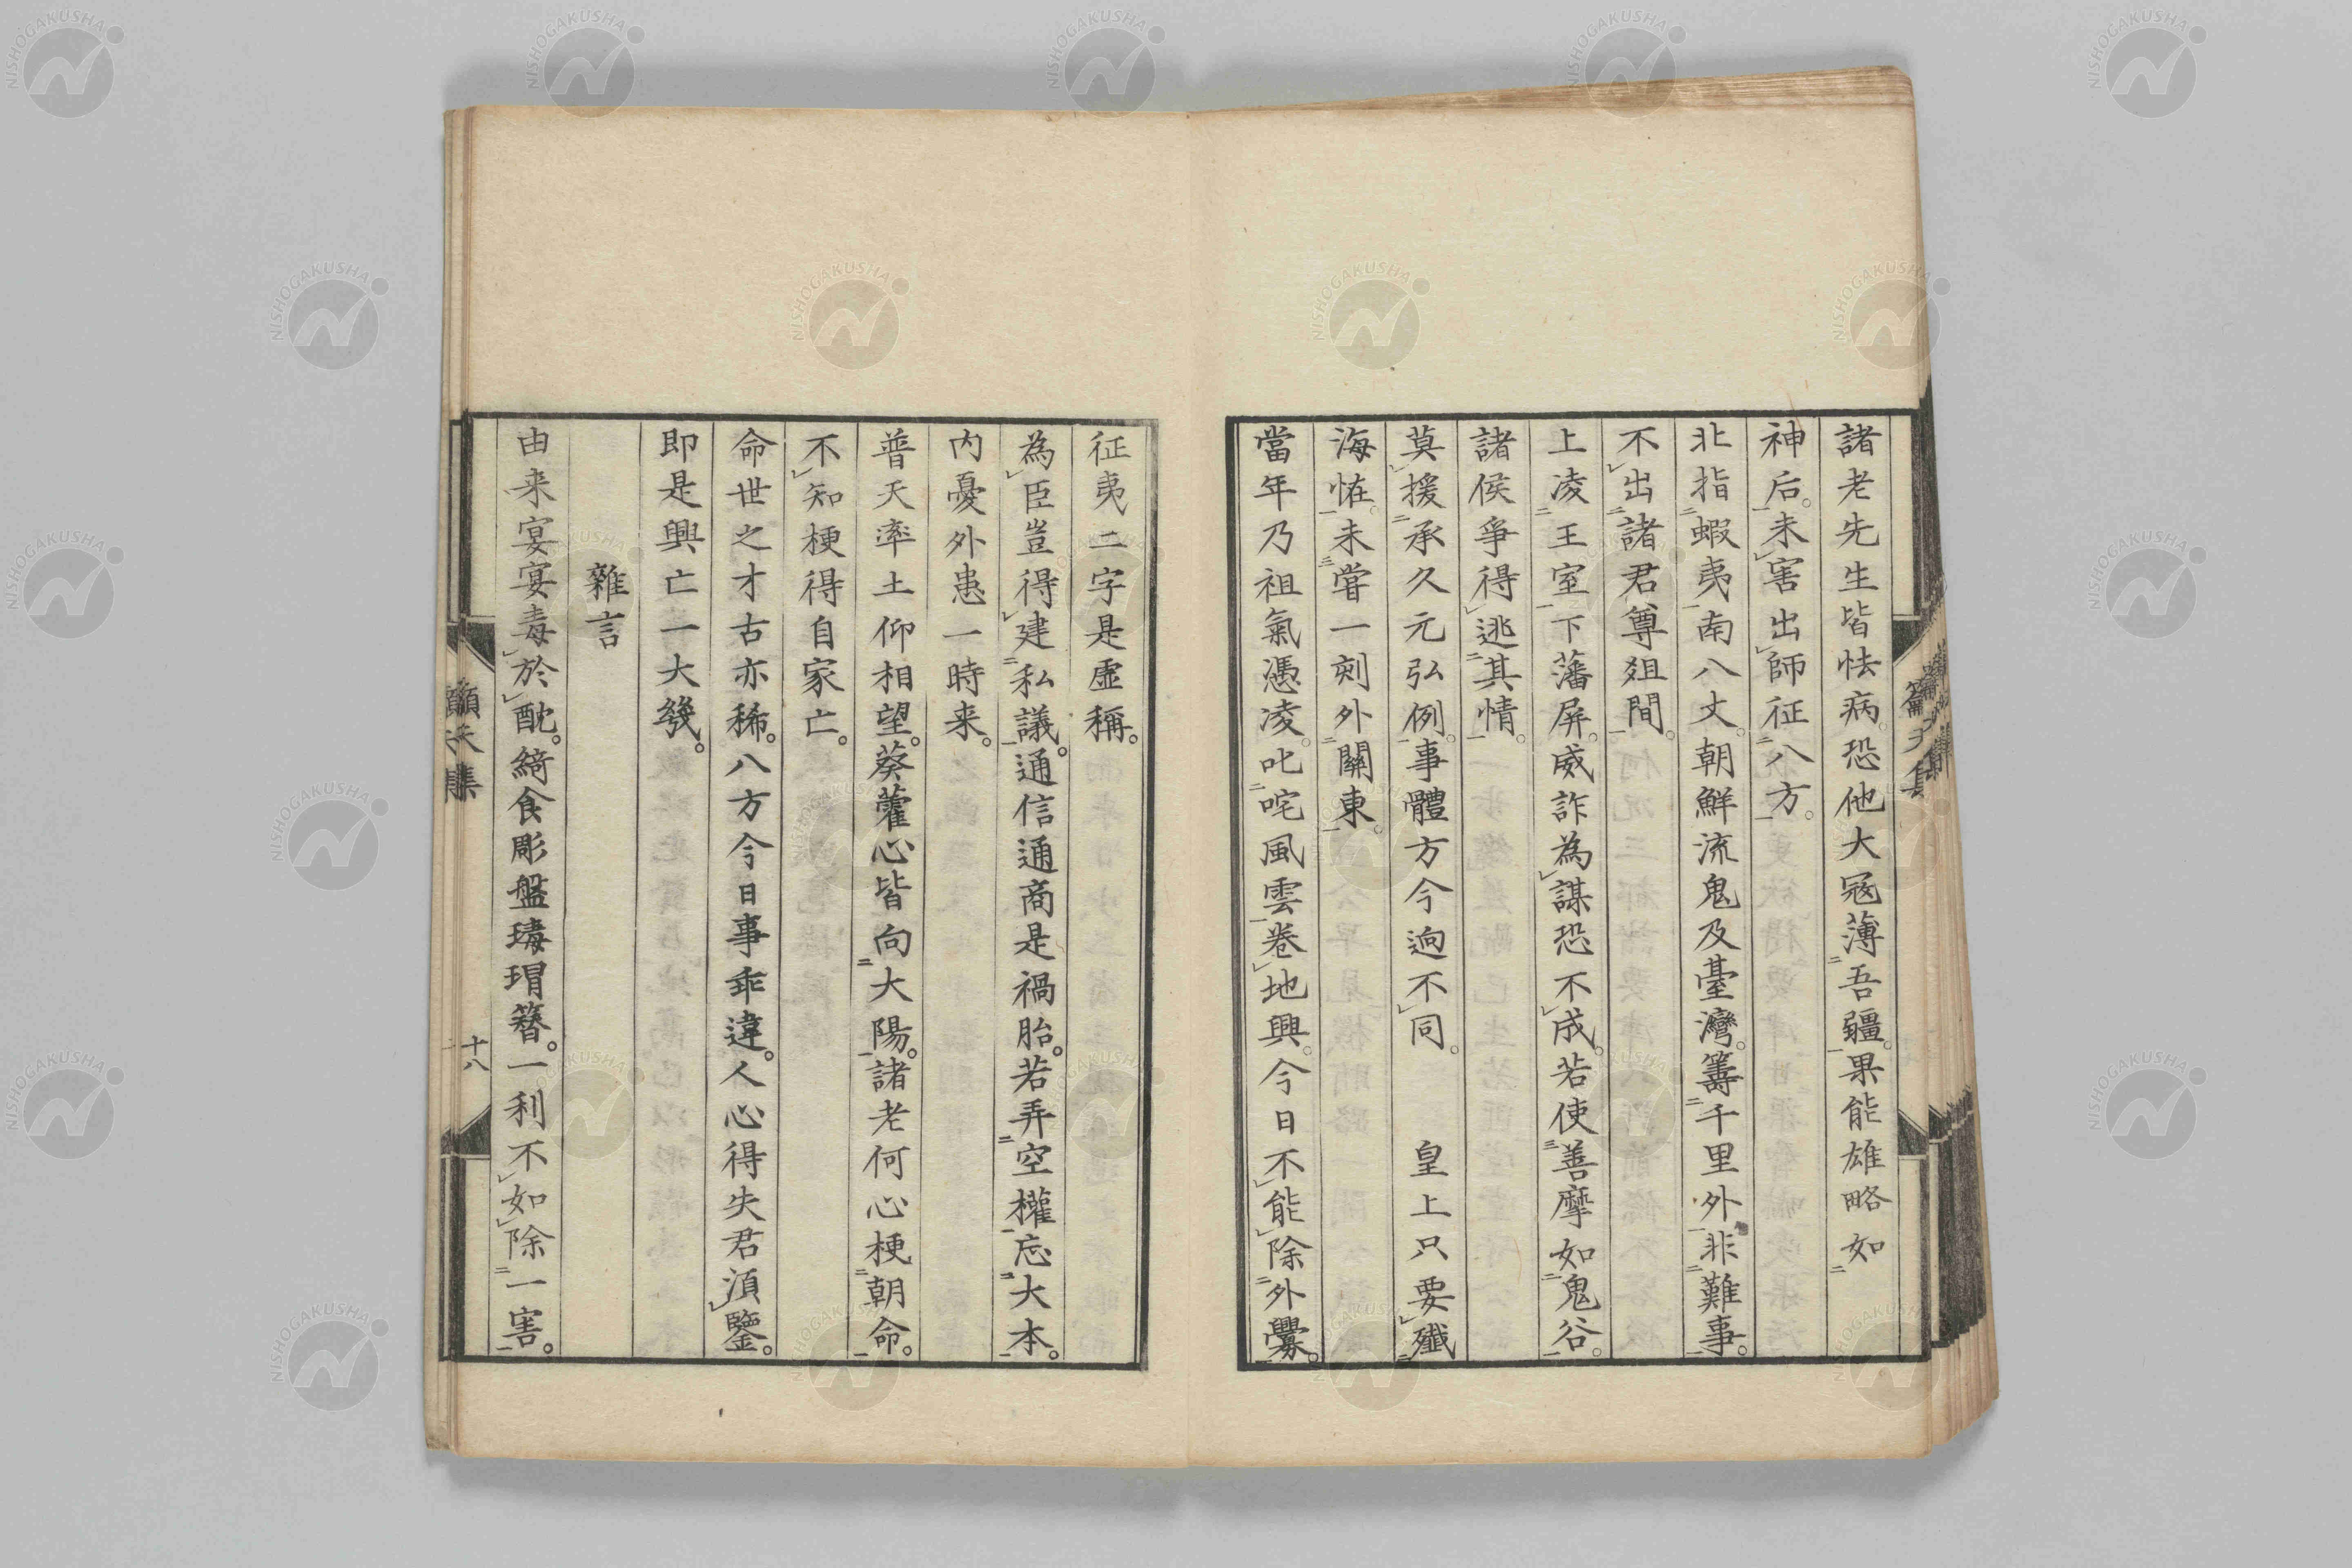 諸老先生皆怯病恐他大冦薄吾疆。果能雄略如
神后。未害出師征八方。
北指蝦夷南八丈。朝鮮流鬼及臺灣。籌千里外非難事。
不出諸君尊爼間。
上凌王室下藩屏。威詐為謀恐不成。若使善摩如鬼谷。
諸侯爭得逃其情。
莫援承久元弘例。事體方今逈不同。 皇上只要殲
海恠。未嘗一刻外關東。
當年乃祖氣憑凌。叱咤風雲卷地興。今日不能除外釁。
征夷二字是虛稱。
為臣豈得建私議。通信通商是禍胎。若弄空權忘大本。
內憂外患一時来。
普天率土仰相望。葵藿心皆向大陽。諸老何心梗朝命。
不知梗得自家亡。
命世之才古亦稀。八方今日事乖違。人心得失君湏鑒。
即是興亡一大幾。
雜言
由来宴宴毒於酖。綺食彫盤瑇瑁簪。一利不如除一害。
十八
NISHOGAKUSHA